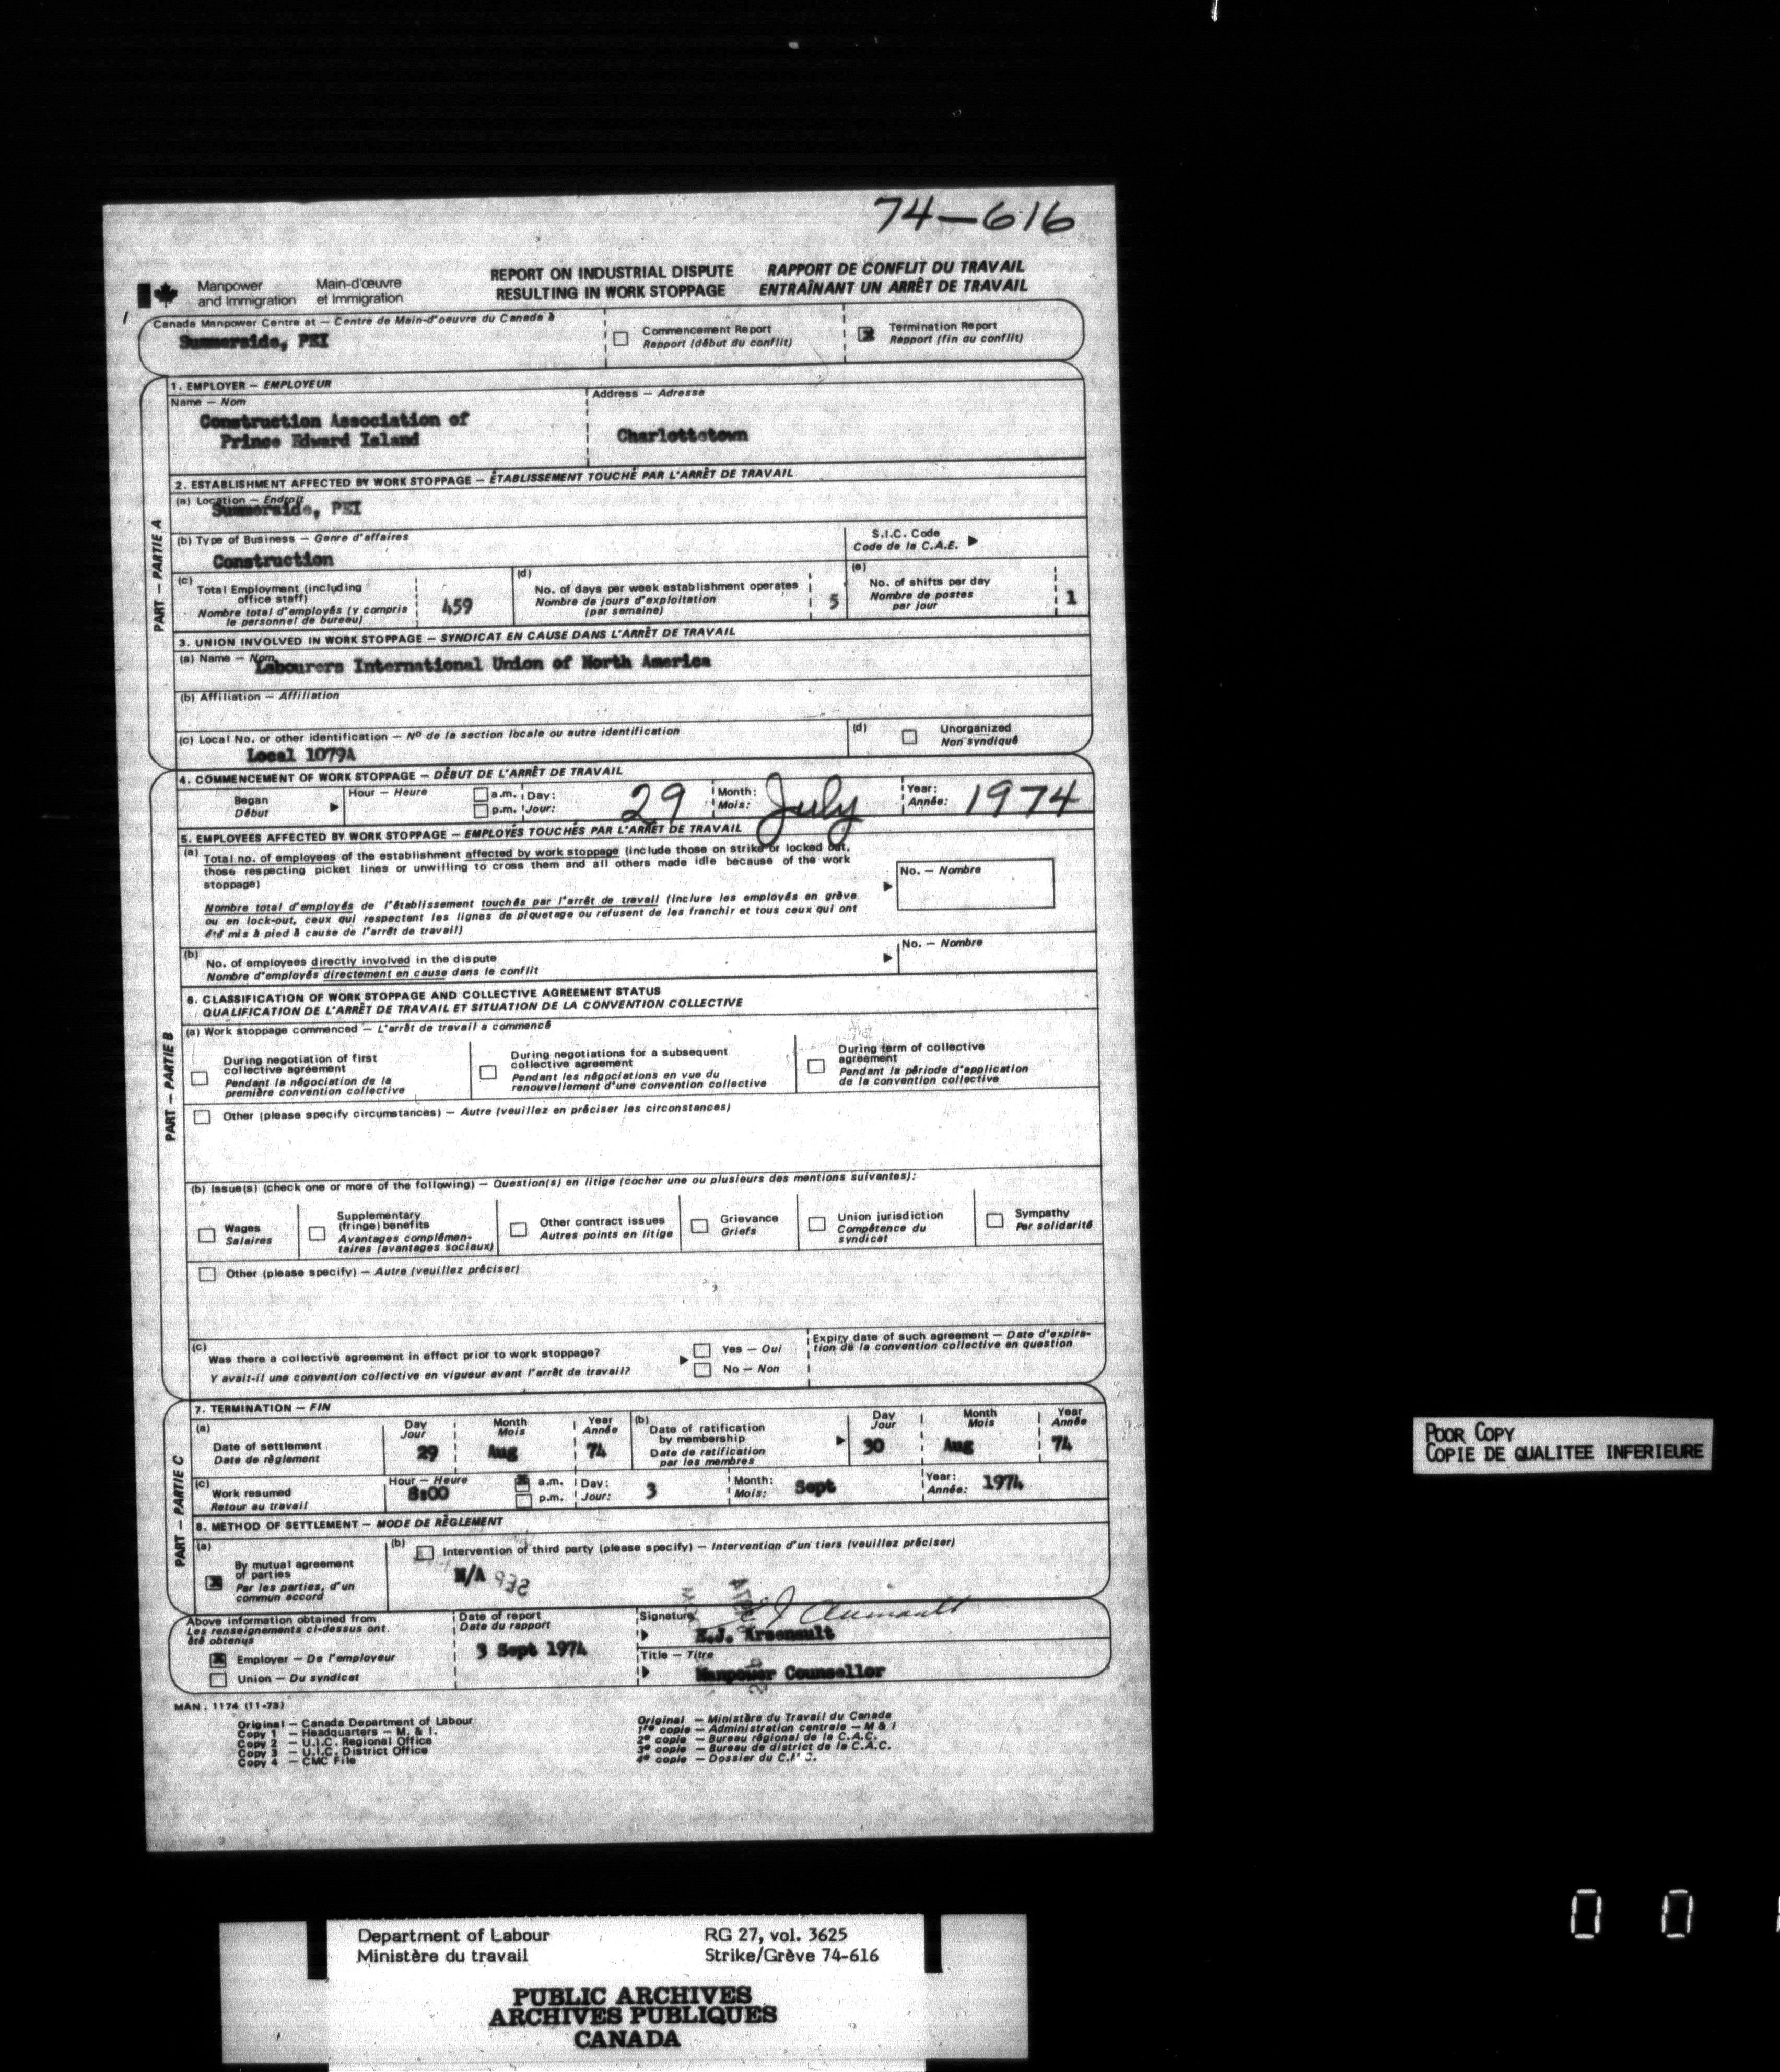 74-616
Manpower and Immigration
Main-d'œuvre et Immigration
REPORT ON INDUSTRIAL DISPUTE RESULTING IN WORK STOPPAGE
RAPPORT DE CONFLIT DU TRAVAIL ENTRAÎNANT UN ARRÊT DE TRAVAIL
Canada Manpower Centre at — Centre de Main-d'oeuvre du Canada à
Summerside, PEI
Commencement Report
Rapport (début du conflit)
Termination Report
Rapport (fin du conflit)
PART — PARTIE A
1. EMPLOYER — EMPLOYEUR
Name — Nom
Construction Association of
Prince Edward Island
Address — Adresse
Charlottetown
2. ESTABLISHMENT AFFECTED BY WORK STOPPAGE — ÉTABLISSEMENT TOUCHÉ PAR L'ARRÊT DE TRAVAIL
(a) Location — Endroit
Summerside, PEI
(b) Type of Business — Genre d'affaires
Construction
S.I.C. Code
Code de la C.A.E.
(c) Total Employment (including
office staff)
Nombre total d'employés (y compris
le personnel de bureau)
459
(d) No. of days per week establishment operates
Nombre de jours d'exploitation
(par semaine)
5
(e) No. of shifts per day
Nombre de postes
par jour
1
3. UNION INVOLVED IN WORK STOPPAGE — SYNDICAT EN CAUSE DANS L'ARRÊT DE TRAVAIL
(a) Name — Nom
Labourers International Union of North America
(b) Affiliation — Affiliation
(c) Local No. or other identification — Nº de la section locale ou autre identification
Local 1079A
(d) Unorganized
Non syndiqué
PART — PARTIE B
4. COMMENCEMENT OF WORK STOPPAGE — DÉBUT DE L'ARRÊT DE TRAVAIL
Began
Début
Hour — Heure
a.m.
p.m.
Day:
Jour:
29
Month:
Mois:
July
Year:
Année:
1974
5. EMPLOYEES AFFECTED BY WORK STOPPAGE — EMPLOYÉS TOUCHÉS PAR L'ARRÊT DE TRAVAIL
(a) Total no. of employees of the establishment affected by work stoppage (include those on strike or locked out,
those respecting picket lines or unwilling to cross them and all others made idle because of the work
stoppage)
Nombre total d'employés de l'établissement touchés par l'arrêt de travail (inclure les employés en grève
ou en lock-out, ceux qui respectent les lignes de piquetage ou refusent de les franchir et tous ceux qui ont
été mis à pied à cause de l'arrêt de travail)
No. — Nombre
(b) No. of employees directly involved in the dispute
Nombre d'employés directement en cause dans le conflit
No. — Nombre
6. CLASSIFICATION OF WORK STOPPAGE AND COLLECTIVE AGREEMENT STATUS
QUALIFICATION DE L'ARRÊT DE TRAVAIL ET SITUATION DE LA CONVENTION COLLECTIVE
(a) Work stoppage commenced — L'arrêt de travail a commencé
During negotiation of first
collective agreement
Pendant la négociation de la
première convention collective
During negotiations for a subsequent
collective agreement
Pendant les négociations en vue du
renouvellement d'une convention collective
During term of collective
agreement
Pendant la période d'application
de la convention collective
Other (please specify circumstances) — Autre (veuillez en préciser les circonstances)
(b) Issue(s) (check one or more of the following) — Question(s) en litige (cocher une ou plusieurs des mentions suivantes):
Wages
Salaires
Supplementary
(fringe) benefits
Avantages complémen-
taires (avantages sociaux)
Other contract issues
Autres points en litige
Grievance
Griefs
Union jurisdiction
Compétence du
syndicat
Sympathy
Par solidarité
Other (please specify) — Autre (veuillez préciser)
(c) Was there a collective agreement in effect prior to work stoppage?
Y avait-il une convention collective en vigueur avant l'arrêt de travail?
Yes — Oui
No — Non
Expiry date of such agreement — Date d'expira-
tion de la convention collective en question
PART — PARTIE C
7. TERMINATION — FIN
(a) Date of settlement
Date de règlement
Day
Jour
29
Month
Mois
Aug
Year
Année
74
(b) Date of ratification
by membership
Date de ratification
par les membres
Day
Jour
30
Month
Mois
Aug
Year
Année
74
(c) Work resumed
Retour au travail
Hour — Heure
8:00
a.m.
p.m.
Day:
Jour:
3
Month:
Mois:
Sept
Year:
Année:
1974
8. METHOD OF SETTLEMENT — MODE DE RÈGLEMENT
(a) By mutual agreement
of parties
Par les parties, d'un
commun accord
(b) Intervention of third party (please specify) — Intervention d'un tiers (veuillez préciser)
N/A
Above information obtained from
Les renseignements ci-dessus ont
été obtenus
Employer — De l'employeur
Union — Du syndicat
Date of report
Date du rapport
3 Sept 1974
Signature
E.J. Arsenault
Title — Titre
Manpower Counsellor
MAN. 1174 (11-73)
Original — Canada Department of Labour
Copy 1 — Headquarters — M. & I.
Copy 2 — U.I.C. Regional Office
Copy 3 — U.I.C. District Office
Copy 4 — CMC File
Original — Ministère du Travail du Canada
1re copie — Administration centrale — M & I
2e copie — Bureau régional de la C.A.C.
3e copie — Bureau de district de la C.A.C.
4e copie — Dossier du C.M.C.
POOR COPY
COPIE DE QUALITEE INFERIEURE
0 0
Department of Labour
Ministère du travail
RG 27, vol. 3625
Strike/Grève 74-616
PUBLIC ARCHIVES
ARCHIVES PUBLIQUES
CANADA